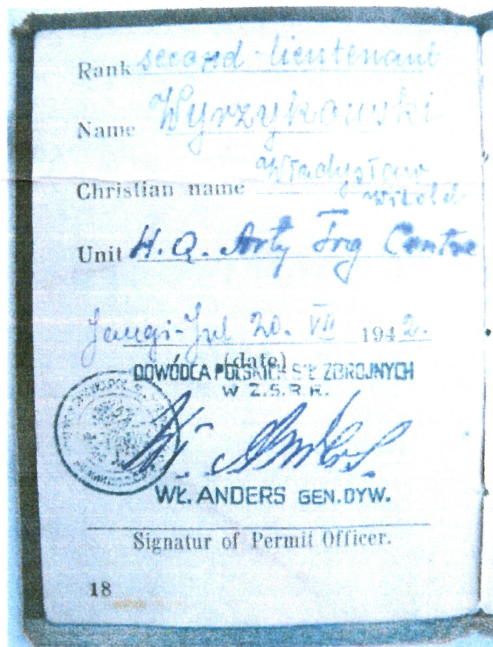 Rank second-lieutenant
Name Wyrzykowski
Christian name Władysław
Witold
Unit H.Q. Arty Trg Centre
Jangi-Jul 20. VII 1942.
(date)
DOWÓDCA POLSKICH SIŁ ZBROJNYCH
W Z.S.R.R.
WŁ. ANDERS GEN. DYW.
Signatur of Permit Officer.
18